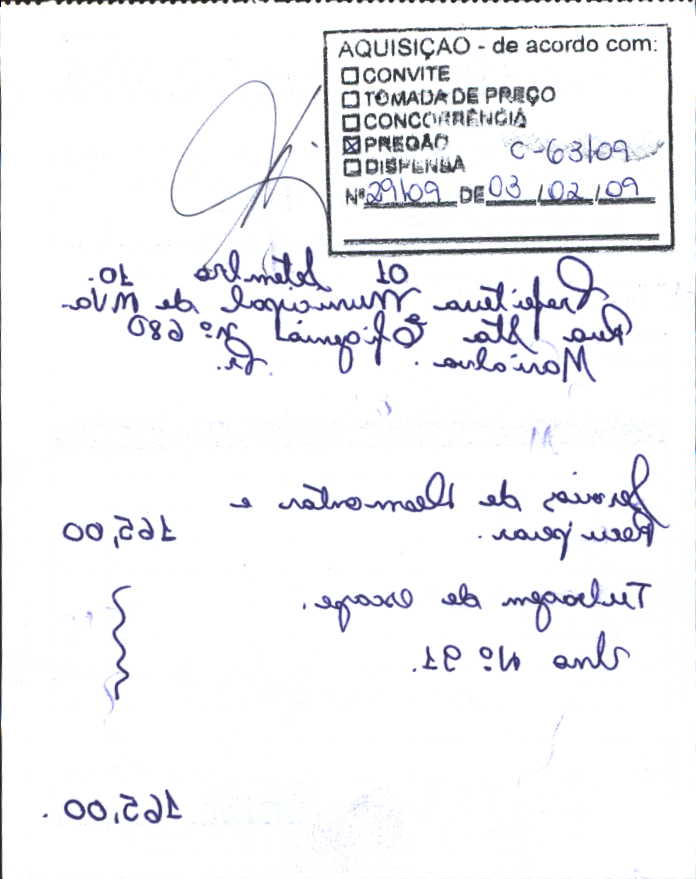 AQUISIÇAO - de acordo com:
☐ CONVITE
☐ TOMADA DE PREÇO
☐ CONCORRÊNCIA
☒ PREGÃO C-63/09
☐ DISPENSA
Nº 29/09 DE 03 / 02 / 09
01 Setembro 10.
Prefeitura Municipal de M.Va.
Rua Sta Efigenia nº 680
Marialva. Pr.
Serviços de Desmontar e
Recuperar. 165,00
Tubagem de escape.
Uno Nº 91.
165,00.